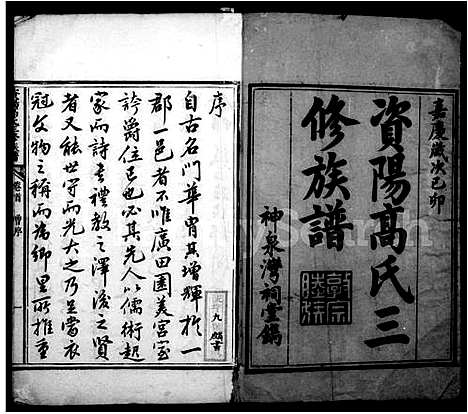 嘉慶歲次己卯
資陽高氏三
修族譜
神泉灣祠堂鐫
序
自古名門華胄其增輝於一
郡一邑者不唯廣田園美宮室
誇爵位已也必其先人以儒術起
家而詩書禮教之澤後之賢
者又能世守而光大之乃足當衣
冠文物之稱而為鄉里所推重
卷首
序
一